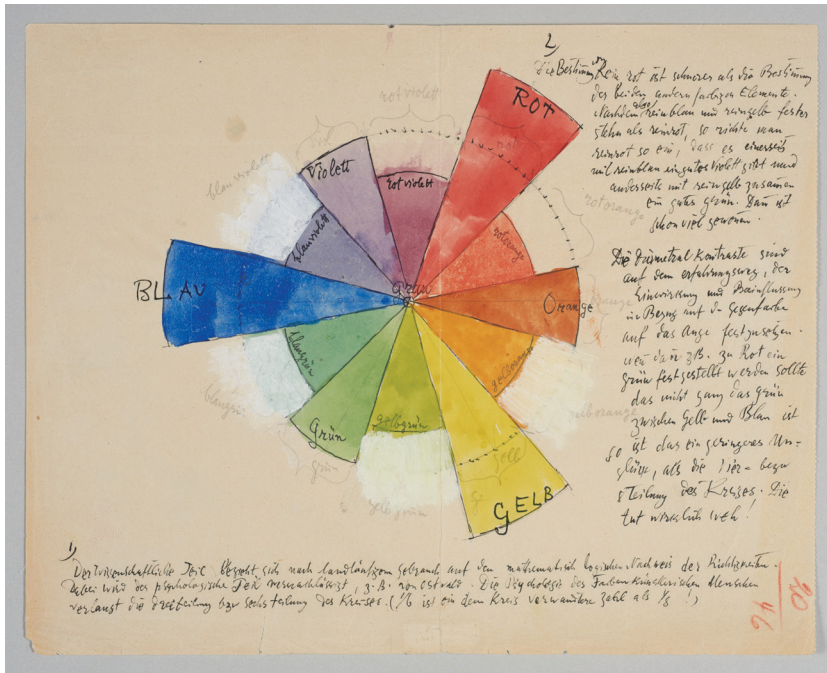 2)
Die Bestimmung von
Rein rot ist schwerer als die Bestimmung
der beiden andern farbigen Elemente.
Nachdem aber reinblau und reingelb fester
stehn als reinrot, so richte man
reinrot so ein, dass es einerseits
mit reinblau ein gutes Violett gibt und
anderseits mit reingelb zusamen
ein gutes
schon viel gewonen.
Die Diametral Kontraste sind
auf dem erfahrungsweg, der
Einwirkung und Beinflussung
in Bezug auf d. Gegenfarbe
auf das Auge festzusetzen.
wen dan z.B. zu Rot ein
grün festgestellt werden sollte
das nicht ganz das grün
zwischen Gelb und Blau ist
so ist das ein geringeres Un=
glück, als die Vier= bezw
teilung des Kreises. Die
tut wirklich weh!
ROT
rotviolett
rotviolett
Violett
blauviolett
blauviolett
rotorange
rotorange
BLAU
Grau
Orange
blaugrün
blaugrün
gelborange
gelborange
Grün
grün
gelbgrün
gelbgrün
gelb
GELB
1)
Der wissenschaftliche Teil bezieht sich nach landläufigem gebrauch auf den mathematisch logischen Nachweis der Richtigkeiten.
Dabei wird der psychologische Teil vernachlässigt, z.B. von Ostwald. Die Psychologie des Farbenkünstlerischen Menschen
verlangt die dreiteilung bzw sechsteilung des Kreises. (1/6 ist ein dem Kreis verwandtere Zahl als 1/8 !)
20
46